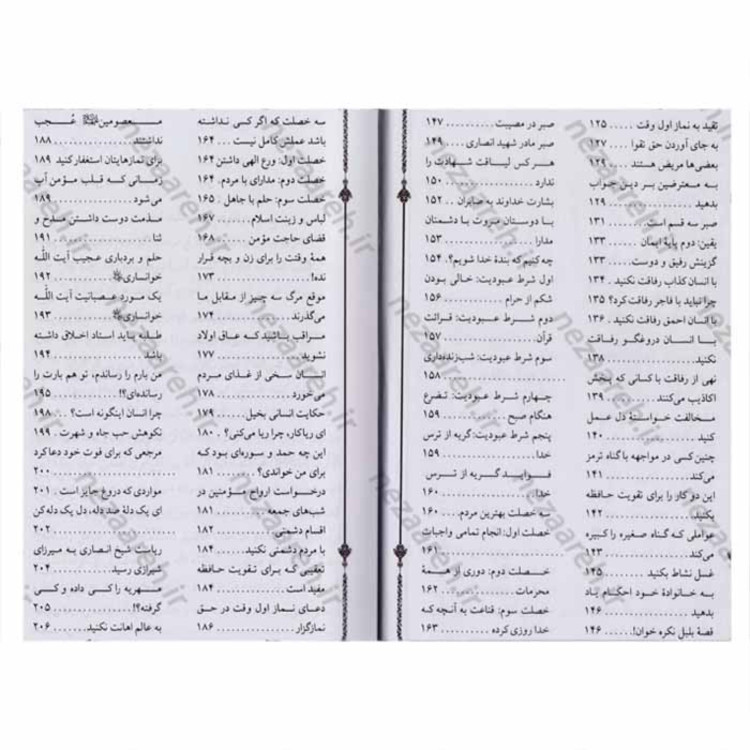 تقید به نماز اول وقت ..... ۱۲۵
به جای آوردن حق تقوا ..... ۱۲۷
بعضی‌ها مریض هستند ..... ۱۲۹
به معترضین بر دین جواب
بدهید ..... ۱۲۹
صبر سه قسم است ..... ۱۳۱
یقین: دوم پایهٔ ایمان ..... ۱۳۳
گزینش رفیق و دوست ..... ۱۳۳
با انسان کذاب رفاقت نکنید . ۱۳۴
چرا نباید با فاجر رفاقت کرد؟ ۱۳۵
با انسان احمق رفاقت نکنید . ۱۳۶
با انسان دروغگو رفاقت
نکنید ..... ۱۳۸
نهی از رفاقت با کسانی که پنجش
اکاذیب می‌کنند ..... ۱۳۹
مخالفت خواستهٔ دل عمل
کنید ..... ۱۴۰
چنین کسی در مواجهه با گناه ترمز
می‌کند ..... ۱۴۱
این دو کار را برای تقویت حافظه
بکنید ..... ۱۴۲
عواملی که گناه صغیره را کبیره
می‌کند ..... ۱۴۳
غسل نشاط بکنید ..... ۱۴۵
به خانوادهٔ خود احکام یاد
بدهید ..... ۱۴۶
قصهٔ بلبل نکره خوان! ..... ۱۴۶
صبر در مصیبت ..... ۱۴۷
صبر مادر شهید انصاری ..... ۱۴۹
هر کس لیاقت شهادت را
ندارد ..... ۱۵۰
بشارت خداوند به صابران .. ۱۵۲
با دوستان مروت با دشمنان
مدارا ..... ۱۵۳
چه کنیم که بندهٔ خدا شویم؟ . ۱۵۴
اول شرط عبودیت: خالی بودن
شکم از حرام ..... ۱۵۶
دوم شرط عبودیت: قرائت
قرآن ..... ۱۵۷
سوم شرط عبودیت: شب‌زنده‌داری
..... ۱۵۸
چهارم شرط عبودیت: تضرع
هنگام صبح ..... ۱۵۹
پنجم شرط عبودیت: گریه از ترس
خدا ..... ۱۵۹
فواید گریه از ترس
خدا ..... ۱۶۰
سه خصلت بهترین مردم .... ۱۶۰
خصلت اول: انجام تمامی واجبات
..... ۱۶۱
خصلت دوم: دوری از همهٔ
محرمات ..... ۱۶۲
خصلت سوم: قناعت به آنچه که
خدا روزی کرده ..... ۱۶۳
سه خصلت که اگر کسی نداشته
باشد عملش کامل نیست ... ۱۶۴
خصلت اول: ورع الهی داشتن ۱۶۴
خصلت دوم: مدارای با مردم . ۱۶۴
خصلت سوم: حلم با جاهل . ۱۶۵
لباس و زینت اسلام ..... ۱۶۷
قضای حاجت مؤمن ..... ۱۶۸
همهٔ وقتت را برای زن و بچه قرار
نده! ..... ۱۷۳
موقع مرگ سه چیز از مقابل ما
می‌گذرند ..... ۱۷۴
مراقب باشید که عاق اولاد
نشوید ..... ۱۷۷
انسان سخی از غذای مردم
می‌خورد ..... ۱۷۸
حکایت انسانی بخیل ..... ۱۷۹
ای ریاکار، چرا ریا می‌کنی؟ . ۱۸۰
این چه حمد و سوره‌ای بود که
برای من خواندی؟ ..... ۱۸۱
درخواست ارواح مؤمنین در
شب‌های جمعه ..... ۱۸۱
اقسام دشمنی ..... ۱۸۲
با مردم دشمنی نکنید ..... ۱۸۴
تعقیبی که برای تقویت حافظه
مفید است ..... ۱۸۴
دعای نماز اول وقت در حق
نمازگزار ..... ۱۸۶
معصومین عُجب
نداشتند ..... ۱۸۸
برای نمازهایتان استغفار کنید ۱۸۹
زمانی که قلب مؤمن آب
می‌شود ..... ۱۸۹
مذمت دوست داشتن مدح و
ثنا ..... ۱۹۱
حلم و بردباری عجیب آیت الله
خوانساری ..... ۱۹۲
یک مورد عصبانیت آیت الله
خوانساری ..... ۱۹۳
طلبه باید استاد اخلاق داشته
باشد ..... ۱۹۴
من بارم را رساندم، تو هم بارت را
رسانده‌ای؟! ..... ۱۹۵
چرا انسان اینگونه است؟ ... ۱۹۸
نکوهش حب جاه و شهرت .. ۱۹۹
مرجعی که برای فوت خود دعا کرد
..... ۲۰۰
مواردی که دروغ جایز است . ۲۰۱
ای یک دلهٔ صد دله، دل یک دله کن
..... ۲۰۲
ریاست شیخ انصاری به میرزای
شیرازی رسید ..... ۲۰۴
مهریه را کی داده و کی
گرفته؟! ..... ۲۰۵
به عالم اهانت نکنید ..... ۲۰۶
nezaareh.ir